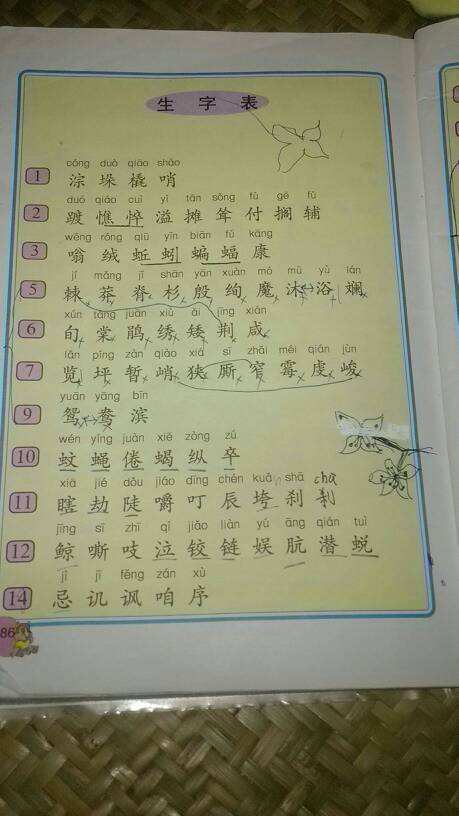 生字表
cóng duò qiāo shào
1 淙 垛 橇 哨
duó qiáo cuì yì tān sǒng fù gē fǔ
2 踱 憔 悴 溢 摊 耸 付 搁 辅
wēng róng qiū yǐn biān fú kāng
3 嗡 绒 蚯 蚓 蝙 蝠 康
jí mǎng jǐ shān yān xuàn mó mù yù lán
5 棘 莽 脊 杉 殷 绚 魔 沐 浴 斓
xún táng juān xiù ǎi jīng xián
6 旬 棠 鹃 绣 矮 荆 咸
lǎn píng zàn qiào xiá sī zhǎi méi qián jùn
7 览 坪 暂 峭 狭 厮 窄 霉 虔 峻
yuān yāng bīn
9 鸳 鸯 滨
wén yíng juàn xiē zòng zú
10 蚊 蝇 倦 蝎 纵 卒
xiā jié dǒu jiáo dīng chén kuǎ shā chà
11 瞎 劫 陡 嚼 叮 辰 垮 刹 刹
jīng sī zhī qì jiǎo liàn yú āng qián tuì
12 鲸 嘶 吱 泣 铰 链 娱 肮 潜 蜕
jì jī fěng zán xù
14 忌 讥 讽 咱 序
86